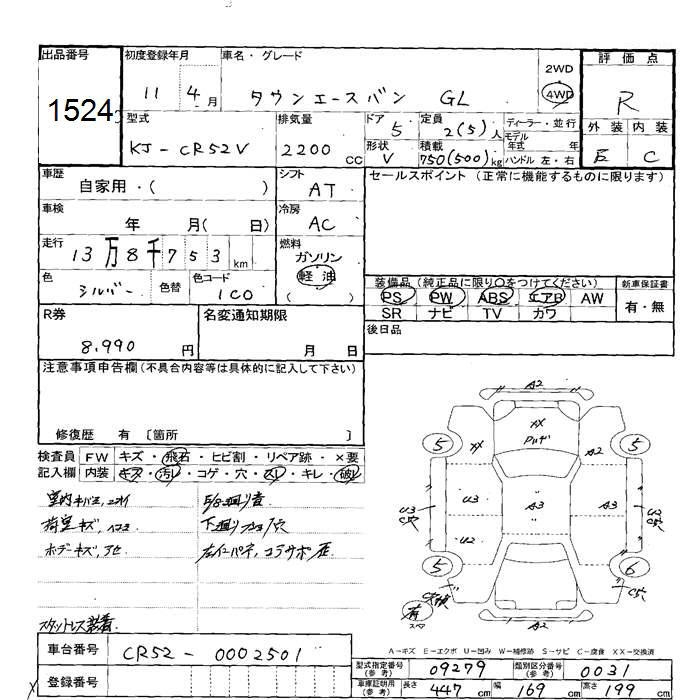 出品番号
1524
初度登録年月
11 4月
車名・グレード
タウンエースバン GL
2WD
4WD
評価点
R
型式
KJ-CR52V
排気量
2200 CC
ドア
5
形状
V
定員
2(5)人
積載
750(500)kg
ディーラー・並行
モデル
年式 年
ハンドル 左・右
外装 内装
E C
車歴
自家用・( )
シフト
AT
セールスポイント (正常に機能するものに限ります)
車検
年 月( 日)
冷房
AC
走行
13万8千753km
燃料
ガソリン
軽油
( )
色
シルバー
色替
色コード
1C0
装備品 (純正品に限り○をつけてください)
PS PW ABS エアB AW
SR ナビ TV カワ
新車保証書
有・無
R券
8,990 円
名変通知期限
月 日
後日品
注意事項申告欄(不具合内容等は具体的に記入して下さい)
修復歴 有 〔箇所 〕
検査員
記入欄
FW キズ・飛石・ヒビ割・リペア跡・×要
内装 キズ・汚レ・コゲ・穴・スレ・キレ・破レ
室内
荷室キズ,
スタットレス装着.
下廻り
A2
XX
XX
5
5
A2
U3
A3
A3
U3
U2
5
6
有
A2
A-キズ E-エクボ U-凹み W-補修跡 S-サビ C-腐食 XX-交換済
車台番号
CR52-0002501
登録番号
型式指定番号
(参考)
09279
類別区分番号
(参考)
0031
車庫証明用
(参考)
長さ 447 cm 幅 169 cm 高さ 199 cm